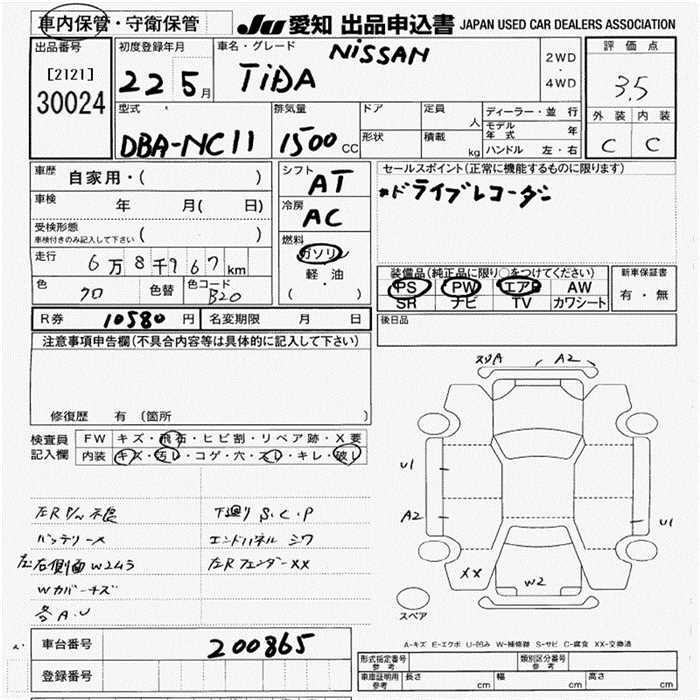 車内保管・守衛保管
JU 愛知 出品申込書 JAPAN USED CAR DEALERS ASSOCIATION
出品番号
[2121]
30024
初度登録年月
22 5月
車名・グレード
NISSAN
TiDA
2WD
・
4WD
評価点
3.5
外装 内装
C C
型式
DBA-NC11
排気量
1500 CC
ドア
形状
定員
人
積載
kg
ディーラー・並行
モデル年式 年
ハンドル 左・右
車歴
自家用・( )
車検
年 月( 日)
受検形態
車検付きのみ記入して下さい ( )
走行
6万8千967km
色
クロ
色替
色コード
B20
シフト
AT
冷房
AC
燃料
ガソリン
軽・油
( ・ )
セールスポイント(正常に機能するものに限ります)
*ドライブレコーダー
装備品(純正品に限り○をつけてください)
PS PW エアB AW
SR ナビ TV カワシート
新車保証書
有・無
後日品
R券 10580 円 名変期限 月 日
注意事項申告欄(不具合内容等は具体的に記入して下さい)
修復歴 有(箇所 )
検査員
記入欄
FW キズ・飛石・ヒビ割・リペア跡・X要
内装 キズ・汚レ・コゲ・穴・スレ・キレ・破レ
左R P/W 不良
バッテリーX
左右側面W243
Wカバーキズ
各A.U
下廻りS.C.P
エンドパネル シワ
左Rフェンダーxx
スリA A2
U1
A2
U1
XX
W2
スペア
A-キズ E-エクボ U-凹み W-補修跡 S-サビ C-腐食 XX-交換済
車台番号 200865
登録番号
形式指定番号
参考
類別区分番号
参考
車庫証明用
参考
長さ cm 幅 cm 高さ cm